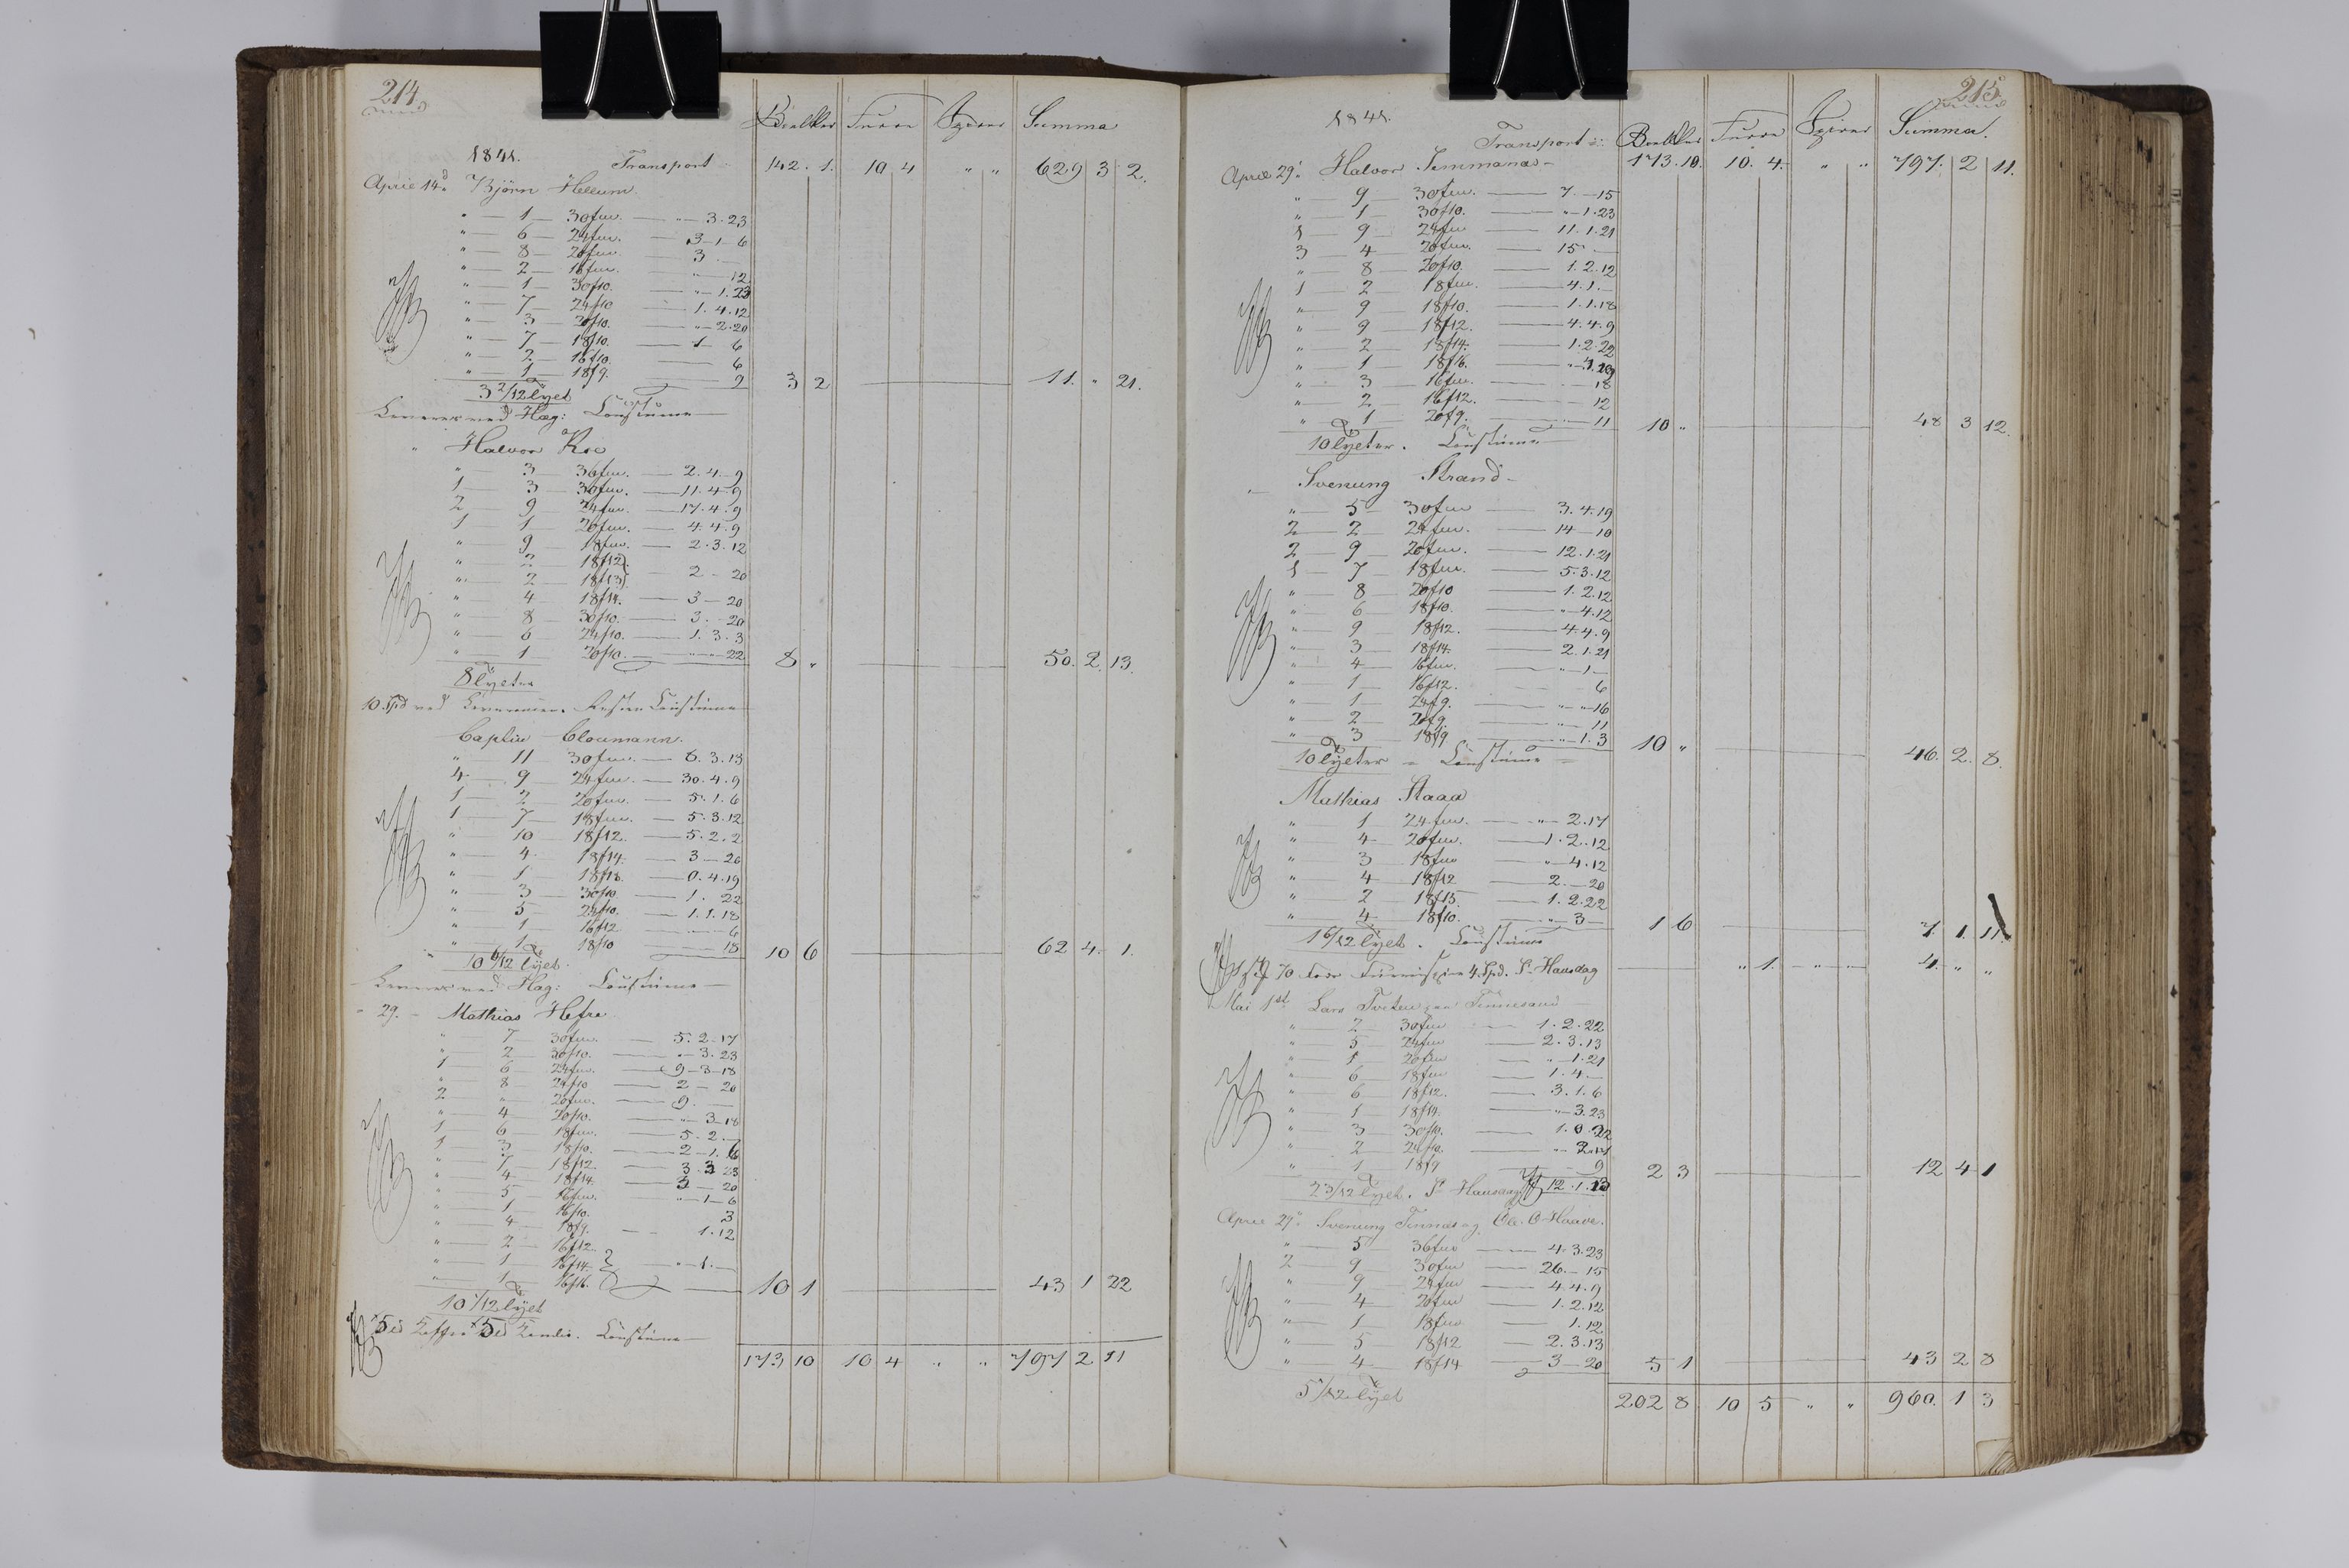 214
Bielker Furre Spirer Summa
1841. Transport 142. 1. 10 4 " " 629 3 2.
April 14d Bjørn Helleum.
" 1 30fm. " 3. 23
" 6 24fm. 3 1 6
" 8 20fm. 3
" 2 18fm. 12
" 1 30f10. " 1. 23
" 7 24f10 1. 4. 12
" 3 20f10. " 2. 20
" 7 18f10. 1 6
" 2 16f10. 6
" 1 18f9. 9
3 2/12 tylt 3 2 11. " 21.
Halvor Roe
" 3 36fm. 2. 4. 9
1 3 30fm. 11. 4. 9
2 9 24fm. 17. 4. 9
1 1 20fm. 4. 4. 9
" 9 18fm. 2. 3. 12
" 2 18f12.
" 2 18f13. 2 20
" 4 18f14. 3 20
" 8 30f10. 3. 20
" 6 24f10. 1. 3. 3
" 1 20f10. 22
8 " 50. 2. 13.
8 tylter
Captin Cloumann.
" 11 30fm. 6. 3. 13
4 9 24fm. 30. 4. 9
1 2 20fm. 5. 1. 6
1 7 18fm. 5. 3. 12
" 10 18f12. 5. 2. 2
" 4 18f14. 3 20
" 1 18f18. 0. 4. 19
" 3 30f10 1. 22
" 5 24f10. 1. 1. 18
" 1 16f12 6
" 1 18f10 18
10 6/12 tylt 10 6 62 4 1.
29. Mathias Hefre
" 7 30fm. 5. 2 17
" 2 30f10. " 3. 23
1 6 24fm. 9 3 18
" 8 24f10 2 20
2 " 20fm. 9.
" 4 20f10. " 3 18
1 6 18fm. 5. 2.
1 3 18f10. 2 1. 6
" 7 18f12. 3 3 23
" 4 18f14. 3 20
" 5 16fm. " 1 6
" 1 16f10. 3
" 4 18f9. 1. 12
" 2 16f12.
" 1 16f14. " 1.
" 1 16f16.
10 1 43 1 22
10 1/12 tylt
173 10 10 4 " " 797 2 11
215
1841.
Transport Bielker Furre Spirer Summa.
173. 10. 10. 4. " " 797. 2 11.
April 29. Halvor Temmanes
" 9 30fm. 7. 15
" 1 30f10. " 1. 23
1 9 24fm 11. 1. 21
3 4 20fm. 15
" 8 20f10. 1. 2. 12
1 2 18fm. 4. 1.
" 9 18f10. 1. 1. 18
" 9 18f12. 4. 4. 9
" 2 18f14. 1. 2. 22
" 1 18f16.
" 3 16fm. 18
" 2 16f12. 12
" 1 20f9. 11
10 " 48 3 12.
10 tylter.
Svenung Strand
" 5 30fm 3. 4. 19
2 2 24fm. 14 10
2 9 20fm. 12. 1. 21
1 7 18fm. 5. 3. 12
" 8 20f10 1. 2. 12
" 6 18f10. " 4. 12
" 9 18f12. 4. 4. 9
" 3 18f14. 2. 1. 21
" 4 16fm. " 1
" 1 16f12. 6
" 1 24f9. " " 16
" 2 20f9. 11
" 3 18f9 " 1. 3
10 " 46. 2. 8.
10 tylter
Mathias Staaa
" 1 24fm. " 2. 17
" 4 20fm. 1. 2. 12
" 3 18fm " 4. 12
" 4 18f12 2. 20
" 2 18f15. 1. 2. 22
" 4 18f10. " 3
1 6 7. 1. 11.
1 6/12 tylt.
4 Spd. St Hansdag " 1. " " 4. " "
Mai 1st Lars Tveten Tinnesand
" 2 30fm 1. 2. 22
" 5 24fm 2. 3. 13
" 1 20fm " 1. 21
" 6 18fm 1. 4.
" 6 18f12. 3. 1. 6
" 1 18f14. " 3. 23
" 3 30f10. 1. 0. 22
" 2 24f10.
" 1 18f9 9
2 3 12 4 1
2 3/12 tylt. St Hansdag 12. 1. 13
April 29. Svenung Tinnes og Ole O. Haave.
" 5 36fm 4. 3. 23
2 9 30fm 26. 15
" 9 24fm 4. 4. 9
" 4 20fm 1. 2. 12
" 1 18fm 1. 12
" 5 18f12 2. 3. 13
" 4 18f14 3 20
5 1 43 2 8
5 1/12 tylt
202 8 10 5 " " 960. 1 3